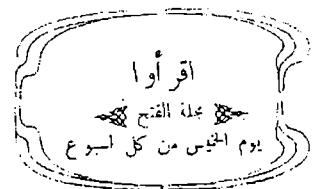 اقرأوا
مجلة الفتح
يوم الخميس من كل اسبوع